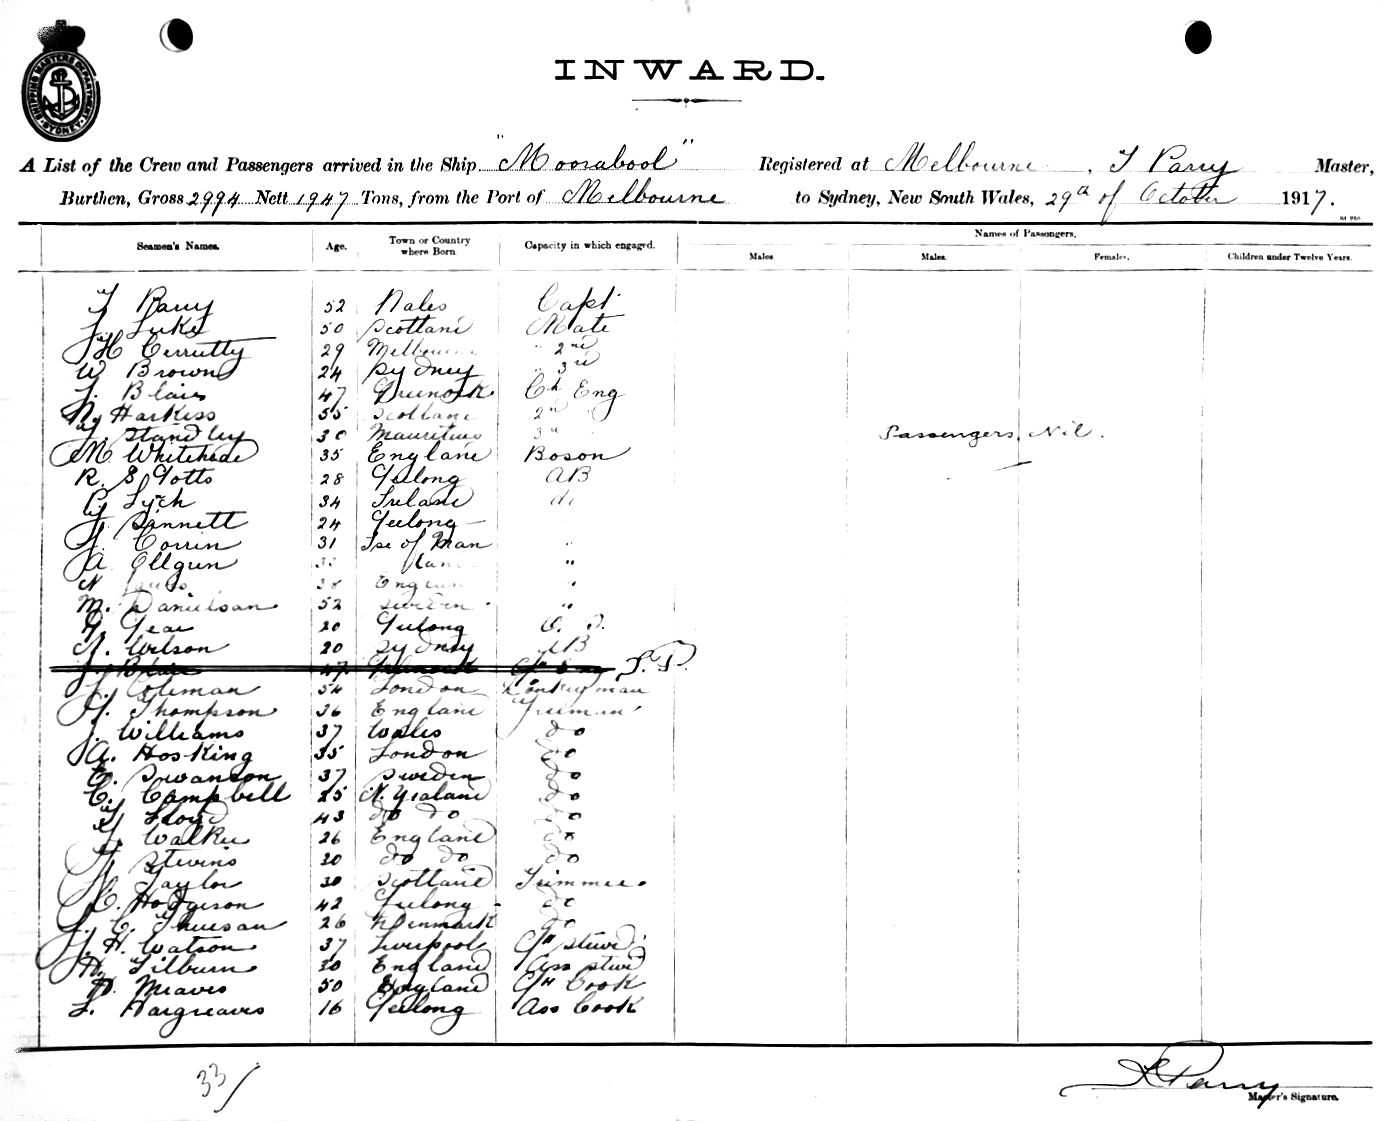 SHIPPING MASTERS DEPARTMENT SYDNEY
INWARD.
A List of the Crew and Passengers arrived in the Ship "Moorabool" Registered at Melbourne, T Parry Master,
Burthen, Gross 2994 Nett 1947 Tons, from the Port of Melbourne to Sydney, New South Wales, 29th of October 1917.
Names of Passengers.
Seamen's Names. Age. Town or Country where Born. Capacity in which engaged. Males. Males. Females. Children under Twelve Years.
T Parry 52 Wales Capt
Luke 50 Scotland Mate
H Cerrutty 29 Melbourne " 2nd
W Brown 24 Sydney " 3rd
J. Blair 47 Greenock Ch Eng
Harkess 55 Scotland 2nd
Standley 30 Mauritius 3rd
Passengers, Nil.
M Whitehead 35 England Boson
R. S. Gotts 28 Geelong AB
P. Lych 34 Ireland do
Sinnett 24 Geelong
Corrin 31 Ise of Man "
A. Ollgun "
N 38 England
M. Danielson 52 Sweden "
Gear 20 Geelong O. S.
Wilson 20 Sydney AB
J. Blair 47 Greenock Ch Eng
Coleman 54 London Donkeyman
Thompson 36 England Fireman
J. Williams 37 Wales do
A. Hosking 35 London do
Swanson 37 Sweden do
C. Campbell 25 N. Zealand do
Lloyd 43 do do do
Walker 26 England do
Stevens 30 do do do
Taylor 30 Scotland Trimmer
C. Hodgeson 42 Geelong do
C. Thuesan 26 Denmark do
J. H. Watson 37 Liverpool Ch Stewd
Tilburn 30 England Ass Stewd
Meaves 50 England Ch Cook
Hargreaves 16 Geelong Ass Cook
33/
T Parry
Master's Signature.